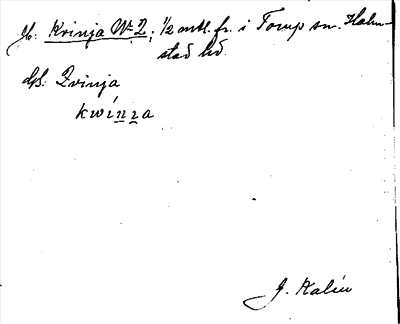 Jb: Kvinja Nº 2; 1/2 mtl. fr. i Torup sn. Halm-
stad hd.
Ds. Qvinja
kwinza
J. Kalén